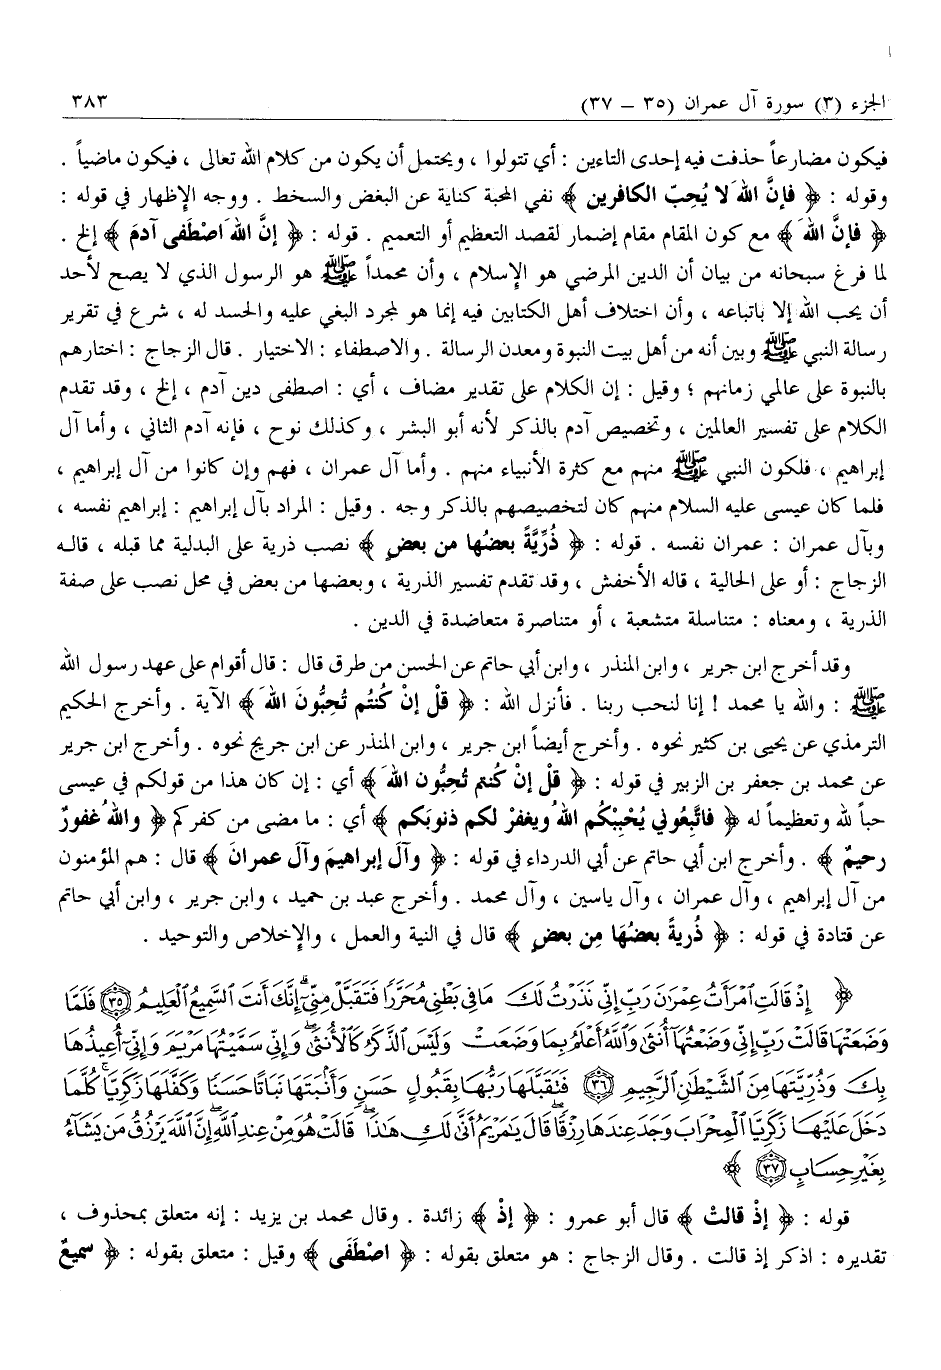 الجزء (٣) سورة آل عمران (٣٥ – ٣٧) ٣٨٣
فيكون مضارعاً حذفت فيه إحدى التاءين : أي تتولوا ، ويحتمل أن يكون من كلام الله تعالى ، فيكون ماضياً .
وقوله : ﴿ فإنَّ اللهَ لا يُحِبّ الكافرين ﴾ نفي المحبة كناية عن البغض والسخط . ووجه الإظهار في قوله :
﴿ فإنَّ اللهَ ﴾ مع كون المقام مقام إضمار لقصد التعظيم أو التعميم . قوله : ﴿ إنَّ اللهَ اصْطَفى آدمَ ﴾ إلخ .
لما فرغ سبحانه من بيان أن الدين المرضي هو الإسلام ، وأن محمداً ﷺ هو الرسول الذي لا يصح لأحد
أن يحب الله إلا باتباعه ، وأن اختلاف أهل الكتابين فيه إنما هو لمجرد البغي عليه والحسد له ، شرع في تقرير
رسالة النبي ﷺ وبين أنه من أهل بيت النبوة ومعدن الرسالة . والاصطفاء : الاختيار . قال الزجاج : اختارهم
بالنبوة على عالمي زمانهم ؛ وقيل : إن الكلام على تقدير مضاف ، أي : اصطفى دين آدم ، إلخ ، وقد تقدم
الكلام على تفسير العالمين ، وتخصيص آدم بالذكر لأنه أبو البشر ، وكذلك نوح ، فإنه آدم الثاني ، وأما آل
إبراهيم ، فلكون النبي ﷺ منهم مع كثرة الأنبياء منهم . وأما آل عمران ، فهم وإن كانوا من آل إبراهيم ،
فلما كان عيسى عليه السلام منهم كان لتخصيصهم بالذكر وجه . وقيل : المراد بآل إبراهيم : إبراهيم نفسه ،
وبآل عمران : عمران نفسه . قوله : ﴿ ذُرِّيَّةً بعضُها من بعضٍ ﴾ نصب ذرية على البدلية مما قبله ، قاله
الزجاج : أو على الحالية ، قاله الأخفش ، وقد تقدم تفسير الذرية ، وبعضها من بعض في محل نصب على صفة
الذرية ، ومعناه : متناسلة متشعبة ، أو متناصرة متعاضدة في الدين .
وقد أخرج ابن جرير ، وابن المنذر ، وابن أبي حاتم عن الحسن من طرق قال : قال أقوام على عهد رسول الله
ﷺ : والله يا محمد ! إنا لنحب ربنا . فأنزل الله : ﴿ قلْ إنْ كُنتُم تُحِبُّونَ اللهَ ﴾ الآية . وأخرج الحكيم
الترمذي عن يحيى بن كثير نحوه . وأخرج أيضاً ابن جرير ، وابن المنذر عن ابن جريج نحوه . وأخرج ابن جرير
عن محمد بن جعفر بن الزبير في قوله : ﴿ قلْ إنْ كُنتم تُحِبُّون اللهَ ﴾ أي : إن كان هذا من قولكم في عيسى
حباً لله وتعظيماً له ﴿ فاتَّبِعُوني يُحْبِبْكُم اللهُ ويغفرْ لكم ذنوبَكم ﴾ أي : ما مضى من كفركم ﴿ واللهُ غفورٌ
رحيمٌ ﴾ . وأخرج ابن أبي حاتم عن أبي الدرداء في قوله : ﴿ وآل إبراهيمَ وآلَ عمرانَ ﴾ قال : هم المؤمنون
من آل إبراهيم ، وآل عمران ، وآل ياسين ، وآل محمد . وأخرج عبد بن حميد ، وابن جرير ، وابن أبي حاتم
عن قتادة في قوله : ﴿ ذُريةً بعضُهَا مِن بعضٍ ﴾ قال في النية والعمل ، والإخلاص والتوحيد .
﴿ إِذْ قَالَتِ ٱمْرَأَتُ عِمْرَٰنَ رَبِّ إِنِّى نَذَرْتُ لَكَ مَا فِى بَطْنِى مُحَرَّرًا فَتَقَبَّلْ مِنِّىٓ ۖ إِنَّكَ أَنتَ ٱلسَّمِيعُ ٱلْعَلِيمُ ۝٣٥ فَلَمَّا
وَضَعَتْهَا قَالَتْ رَبِّ إِنِّى وَضَعْتُهَآ أُنثَىٰ وَٱللَّهُ أَعْلَمُ بِمَا وَضَعَتْ وَلَيْسَ ٱلذَّكَرُ كَٱلْأُنثَىٰ ۖ وَإِنِّى سَمَّيْتُهَا مَرْيَمَ وَإِنِّىٓ أُعِيذُهَا
بِكَ وَذُرِّيَّتَهَا مِنَ ٱلشَّيْطَٰنِ ٱلرَّجِيمِ ۝٣٦ فَتَقَبَّلَهَا رَبُّهَا بِقَبُولٍ حَسَنٍ وَأَنۢبَتَهَا نَبَاتًا حَسَنًا وَكَفَّلَهَا زَكَرِيَّا ۖ كُلَّمَا
دَخَلَ عَلَيْهَا زَكَرِيَّا ٱلْمِحْرَابَ وَجَدَ عِندَهَا رِزْقًا ۖ قَالَ يَٰمَرْيَمُ أَنَّىٰ لَكِ هَٰذَا ۖ قَالَتْ هُوَ مِنْ عِندِ ٱللَّهِ ۖ إِنَّ ٱللَّهَ يَرْزُقُ مَن يَشَآءُ
بِغَيْرِ حِسَابٍ ۝٣٧ ﴾
قوله : ﴿ إذْ قالتْ ﴾ قال أبو عمرو : ﴿ إذْ ﴾ زائدة . وقال محمد بن يزيد : إنه متعلق بمحذوف ،
تقديره : اذكر إذ قالت . وقال الزجاج : هو متعلق بقوله : ﴿ اصْطَفَى ﴾ وقيل : متعلق بقوله : ﴿ سميعٌ